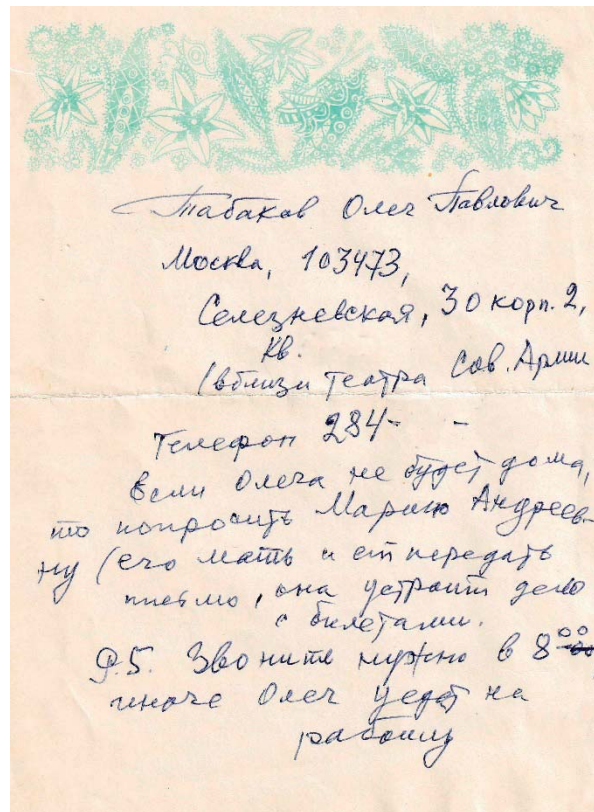 Табаков Олег Павлович
Москва, 103473,
Селезневская, 30 корп. 2,
кв.
(вблизи театра Сов. Армии
Телефон 284- -
Если Олега не будет дома,
то попросить Марию Андреев-
ну (его мать и ей передать
письмо, она устроит дело
с билетами.
P.S. Звонить нужно в 8 00
иначе Олег уедет на
работу